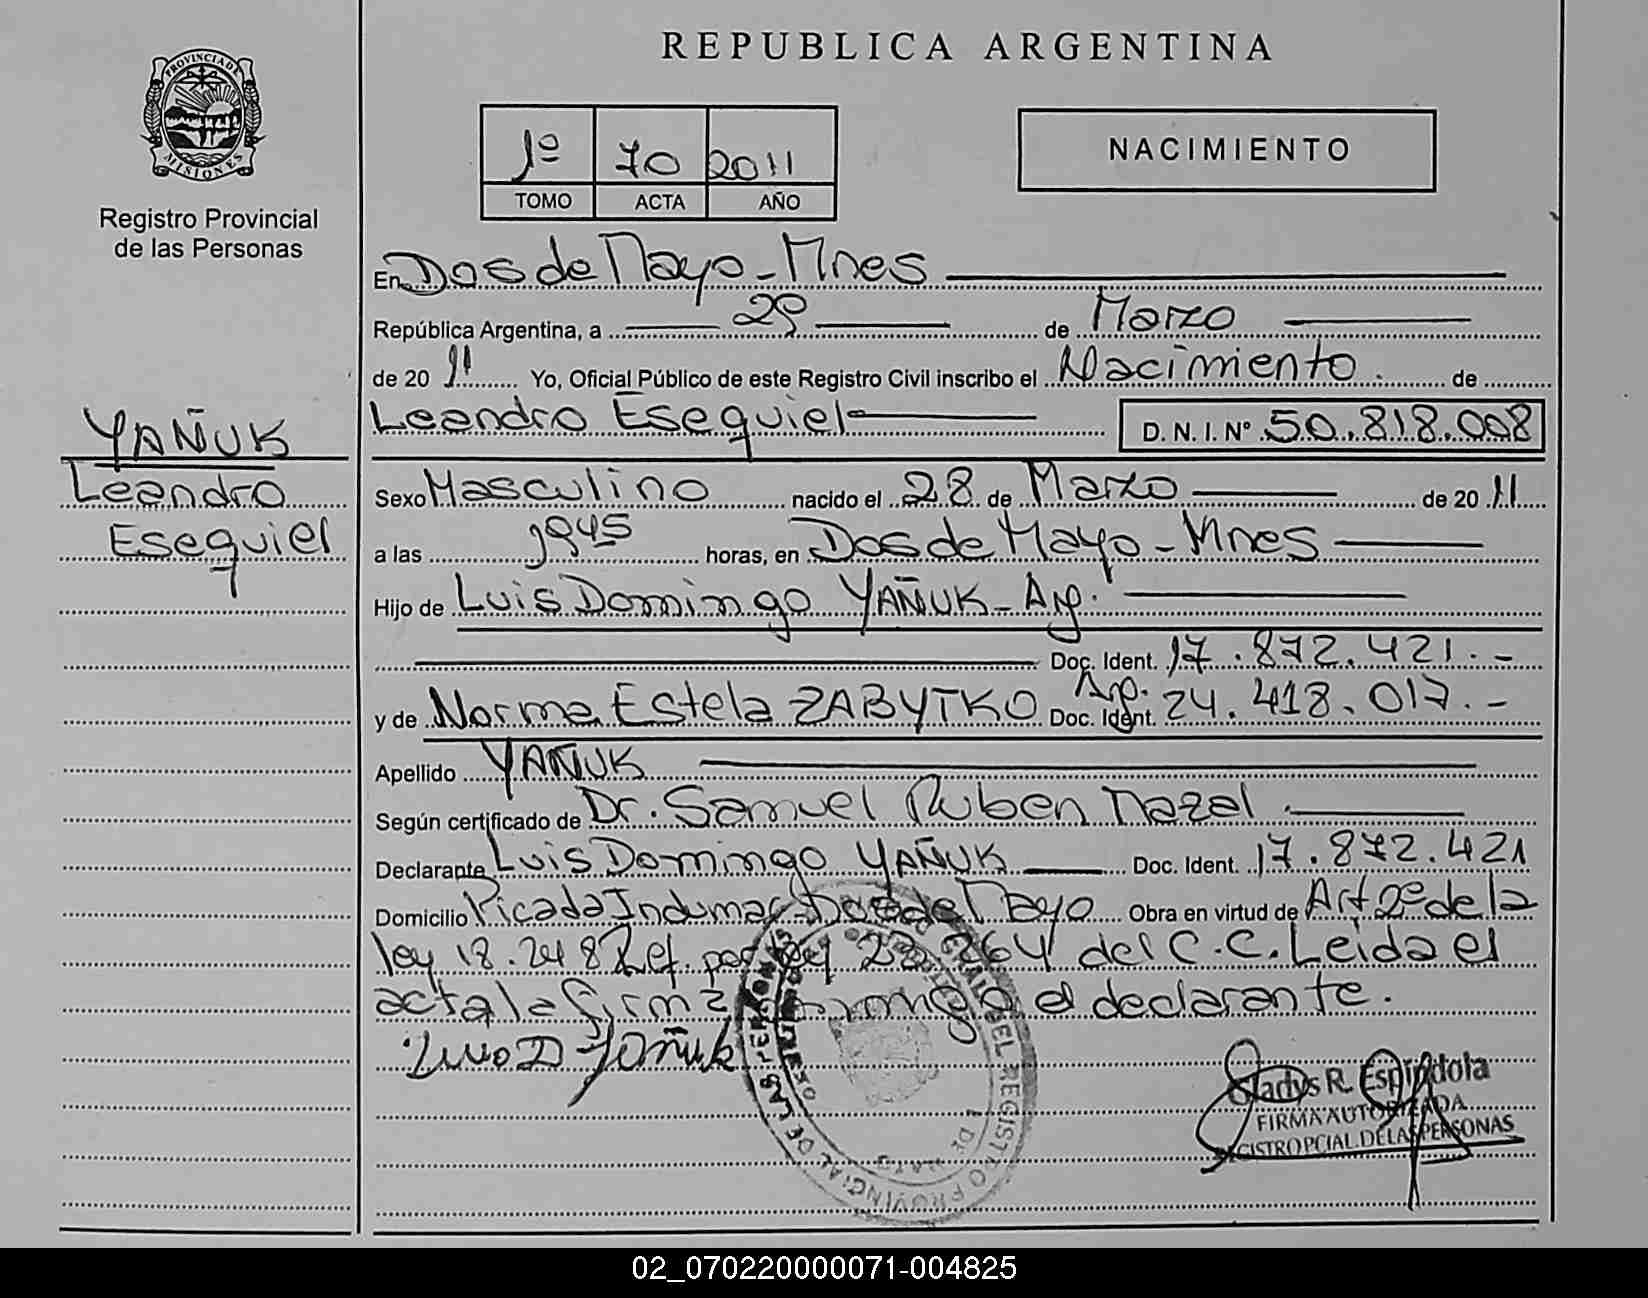 REPUBLICA ARGENTINA
PROVINCIA DE
MISIONES
Registro Provincial
de las Personas
1º 70 2011
TOMO ACTA AÑO
NACIMIENTO
En Dos de Mayo - Mnes
República Argentina, a 29 de Marzo
de 20 11 Yo, Oficial Público de este Registro Civil inscribo el Nacimiento de
Leandro Esequiel D. N. I. Nº 50.818.008
YAÑUK
Leandro
Esequiel
Sexo Masculino nacido el 28 de Marzo de 20 11
a las 1945 horas, en Dos de Mayo - Mnes
Hijo de Luis Domingo YAÑUK - Arg.
Doc. Ident. 17.872.421.-
y de Norma Estela ZABYTKO Arg. Doc. Ident. 24.418.017.-
Apellido YAÑUK
Según certificado de Dr. Samuel Ruben Mazal
Declarante Luis Domingo YAÑUK Doc. Ident. 17.872.421
Domicilio Picada Indumar - Dos de Mayo Obra en virtud de Art 2º de la
ley 18.248 Ref. por ley del C.C. Leida el
acta la firma conmigo el declarante.
Luis D Yañuk
REGISTRO PROVINCIAL DE LAS PERSONAS
Gladys R. Espindola
FIRMA AUTORIZADA
PCIAL. DE LAS PERSONAS
02_070220000071-004825